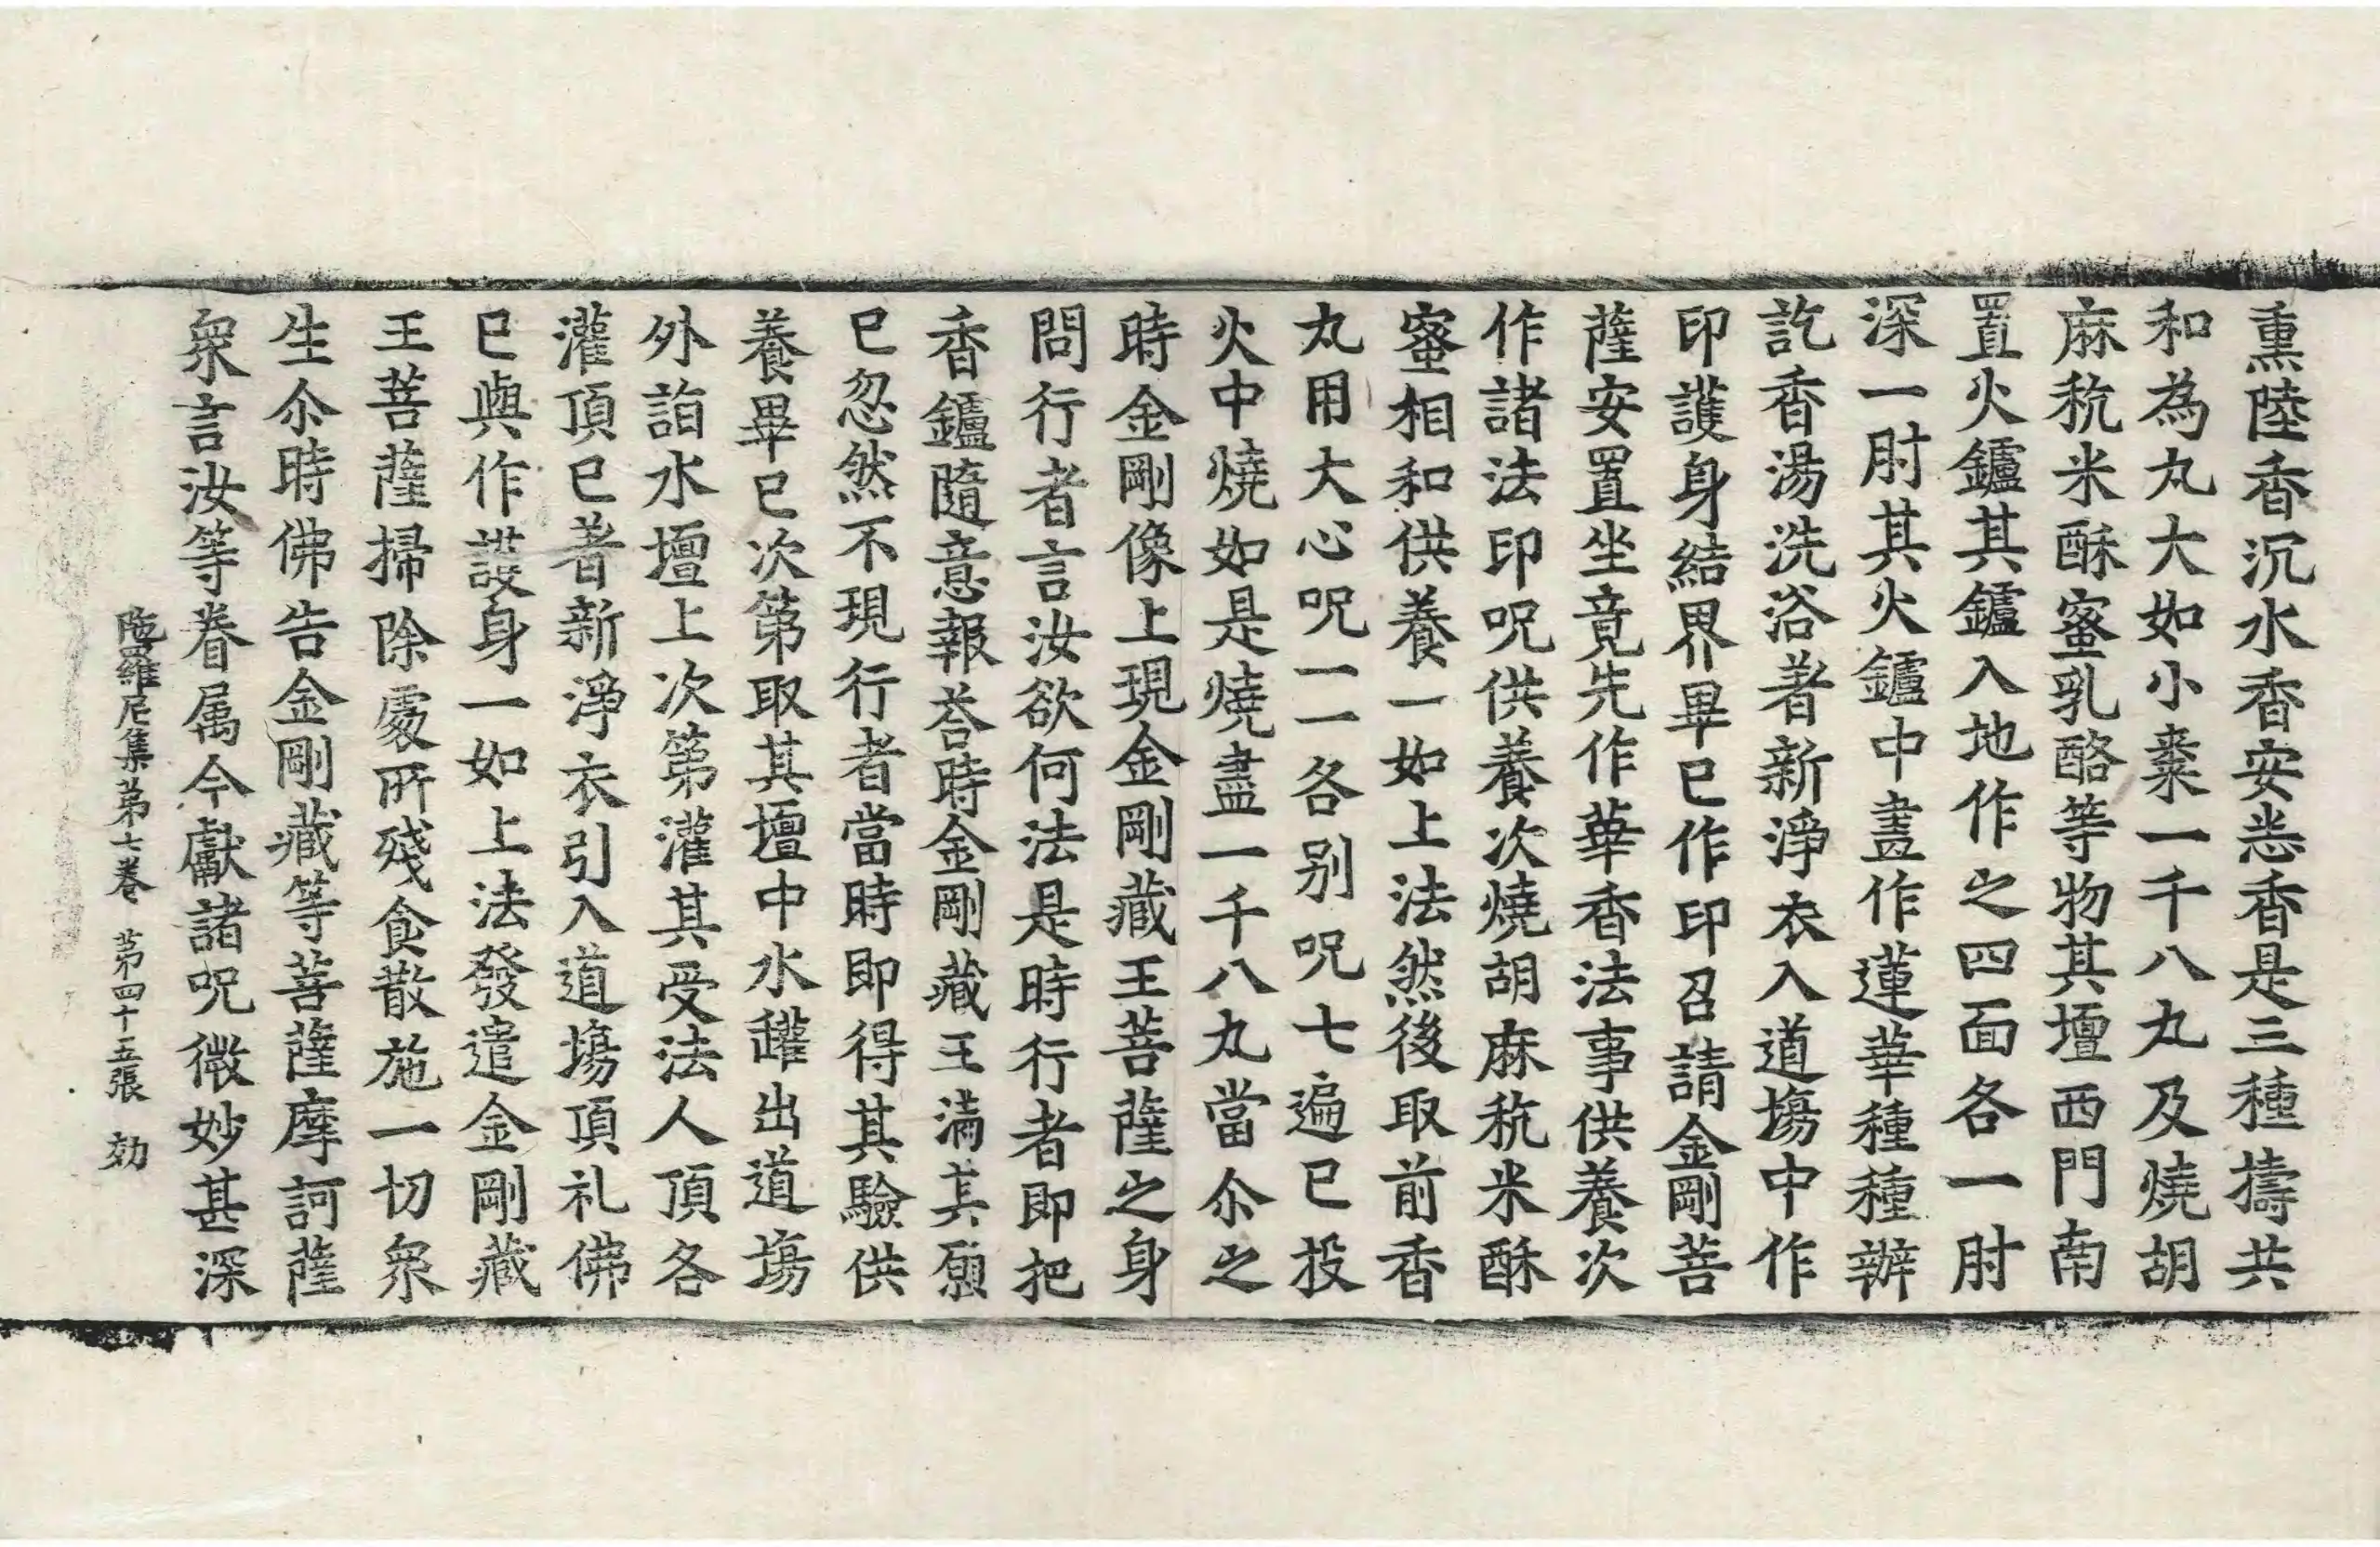 熏陸香沉水香安悉香是三種擣共
和為丸大如小棗一千八丸及燒胡
麻秔米酥蜜乳酪等物其壇西門南
置火鑪其鑪入地作之四面各一肘
深一肘其火鑪中畫作蓮華種種辦
訖香湯洗浴著新淨衣入道場中作
印護身結界畢已作印召請金剛菩
薩安置坐竟先作華香法事供養次
作諸法印呪供養次燒胡麻秔米酥
蜜相和供養一如上法然後取前香
丸用大心呪一一各别呪七遍已投
火中燒如是燒盡一千八丸當尒之
時金剛像上現金剛藏王菩薩之身
問行者言汝欲何法是時行者即把
香鑪隨意報荅時金剛藏王滿其願
已忽然不現行者當時即得其驗供
養畢已次第取其壇中水罐出道場
外詣水壇上次第灌其受法人頂各
灌頂已著新淨衣引入道場頂礼佛
已與作護身一如上法發遣金剛藏
王菩薩掃除處所殘食散施一切衆
生尒時佛告金剛藏等菩薩摩訶薩
衆言汝等眷属今獻諸呪微妙甚深
陁羅尼集第七卷 第四十五張 効